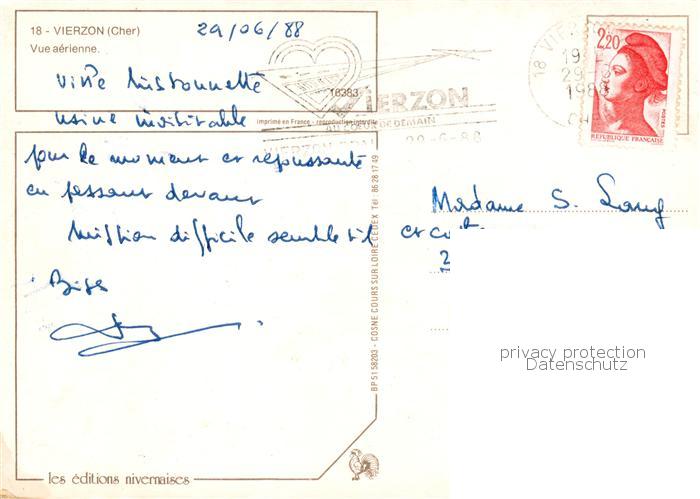 18 - VIERZON (Cher)
Vue aérienne.
29/06/88
18383
VIERZON
AU COEUR DE DEMAIN
29-6-88
18 VIERZON
19
29-6
1988
CH
2,20
POSTES
REPUBLIQUE FRANÇAISE
imprimé en France - reproduction interdite
ville tristounette
usine invisitable
pour le moment et repoussante
en passant devant
Mission difficile semble t il
Bises
Madame S. Lang
et
BP 51 58203 - COSNE COURS SUR LOIRE CEDEX Tél. 86 28 17 49
les éditions nivernaises
privacy protection
Datenschutz